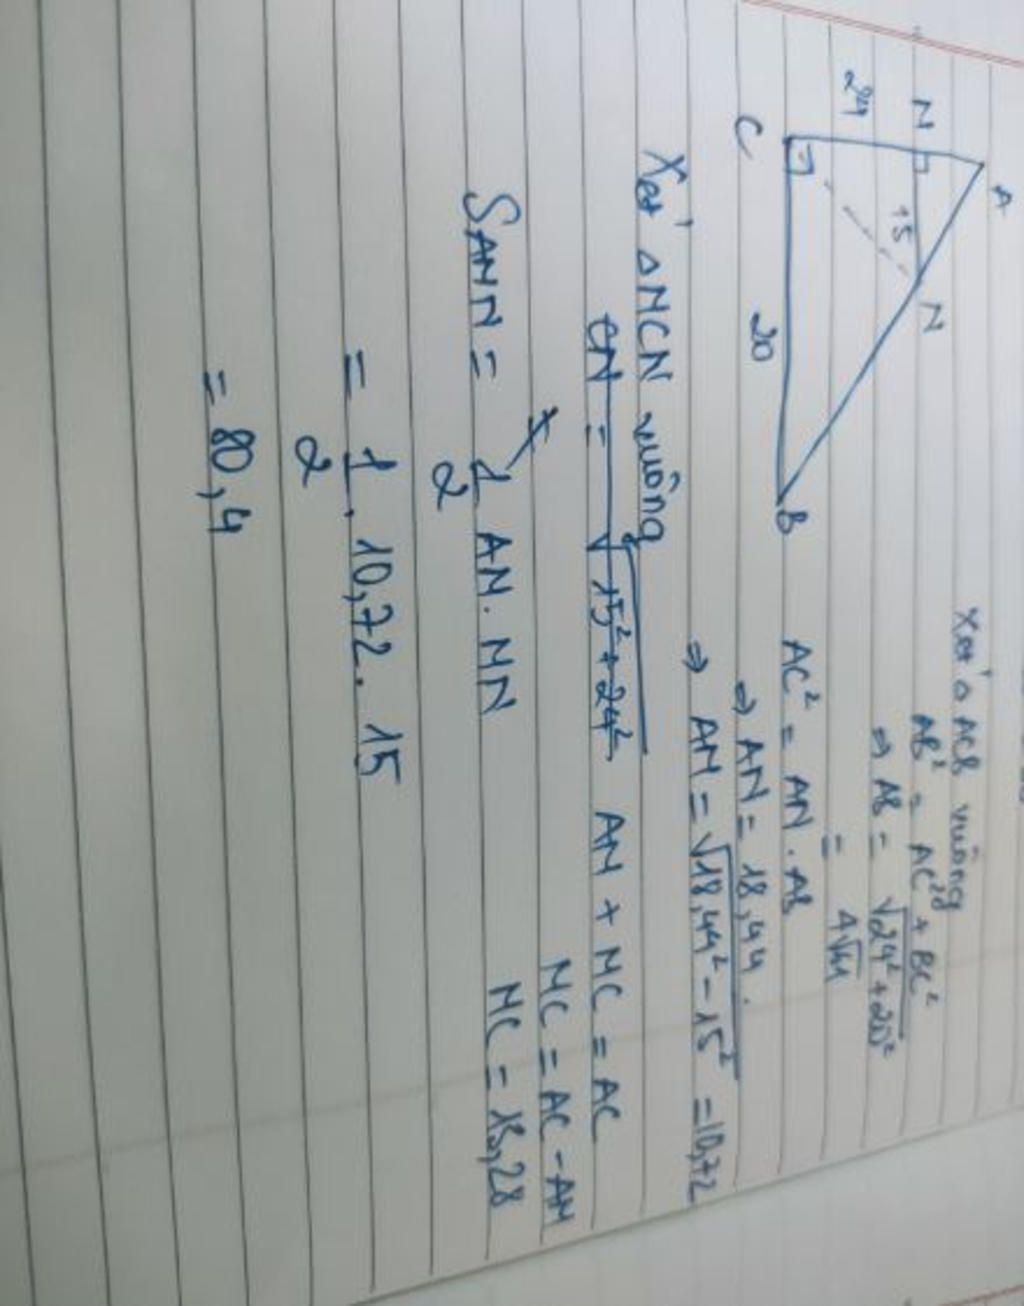 A
N
N
24
15
C
20
B
Xét Δ ACB vuông
AB² = AC² + BC²
⇒ AB = √24² + 20²
= 4√61
AC² = AN . AB
⇒ AN = 18,44 .
⇒ AM = √18,44² - 15² = 10,72
Xét Δ MCN vuông
CN = √15² + 24²
AM + MC = AC
MC = AC - AM
MC = 13,28
SAMN = 1/2 AM . MN
= 1/2 . 10,72 . 15
= 80,4